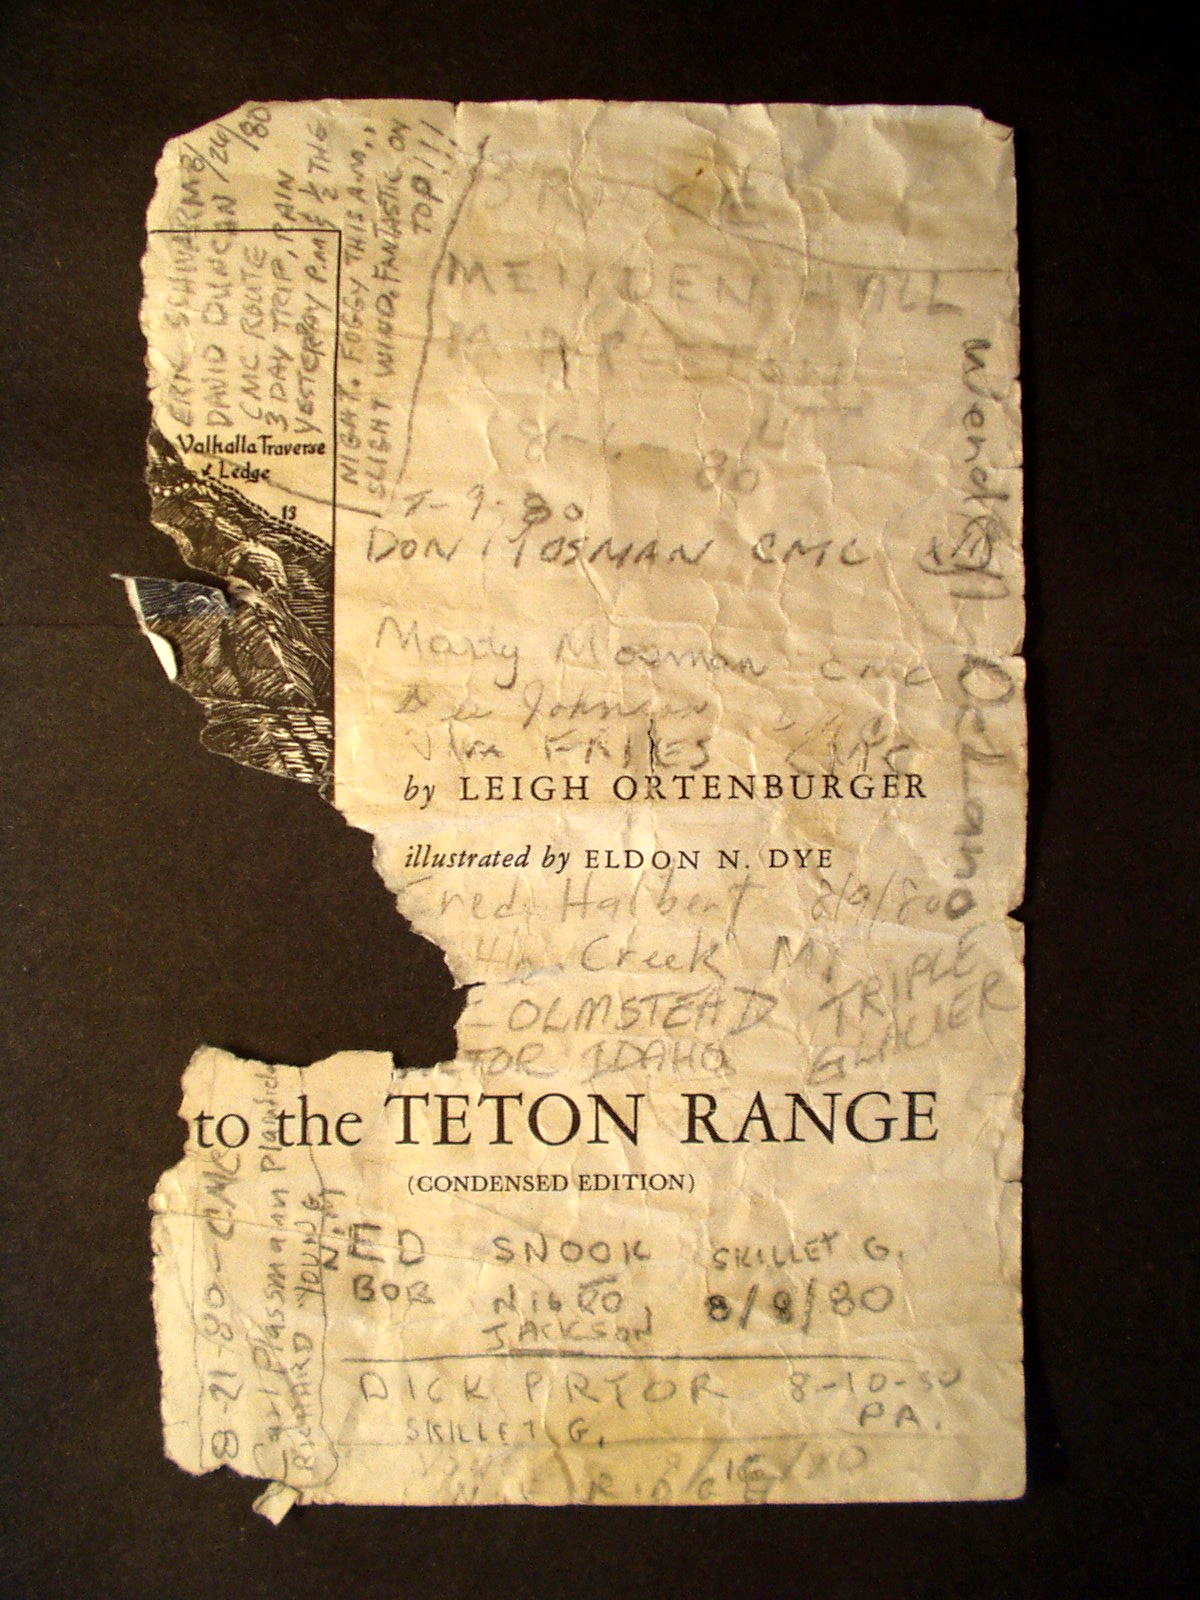 ERIK
DAVID DUNCAN 8/26/80
CMC ROUTE
3 DAY TRIP, RAIN
YESTERDAY P.M. & ½ THE
NIGHT. FOGGY THIS A.M.,
SLIGHT WIND. FANTASTIC ON
TOP!!!
Valhalla Traverse
Ledge
13
MENDENHALL
80
9-80
DON MOSMAN CMC
Marty Mosman CMC
Johnson
Jim FRIES CMC
Wendell DeLano
by LEIGH ORTENBURGER
illustrated by ELDON N. DYE
Fred Halbert 8/9/80
Creek MI
OLMSTEAD TRIPLE
IDAHO GLACIER
to the TETON RANGE
(CONDENSED EDITION)
8-21-80-CMC
Carl Plassmann Plainfield
RICHARD YOUNG N.J.
ED SNOOK SKILLET G.
BOB NIGRO, 8/8/80
JACKSON
DICK PRYOR 8-10-80
SKILLET G. PA.
RIDGE